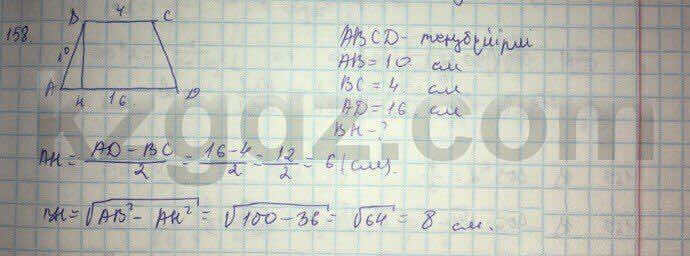 158.
4
B C
10
A H 16 D
ABCD - теңбүйірлі
AB = 10 см
BC = 4 см
AD = 16 см
BH - ?
AH = \frac{AD - BC}{2} = \frac{16 - 4}{2} = \frac{12}{2} = 6 (см).
BH = \sqrt{AB² - AH²} = \sqrt{100 - 36} = \sqrt{64} = 8 см.
kzgdz.com